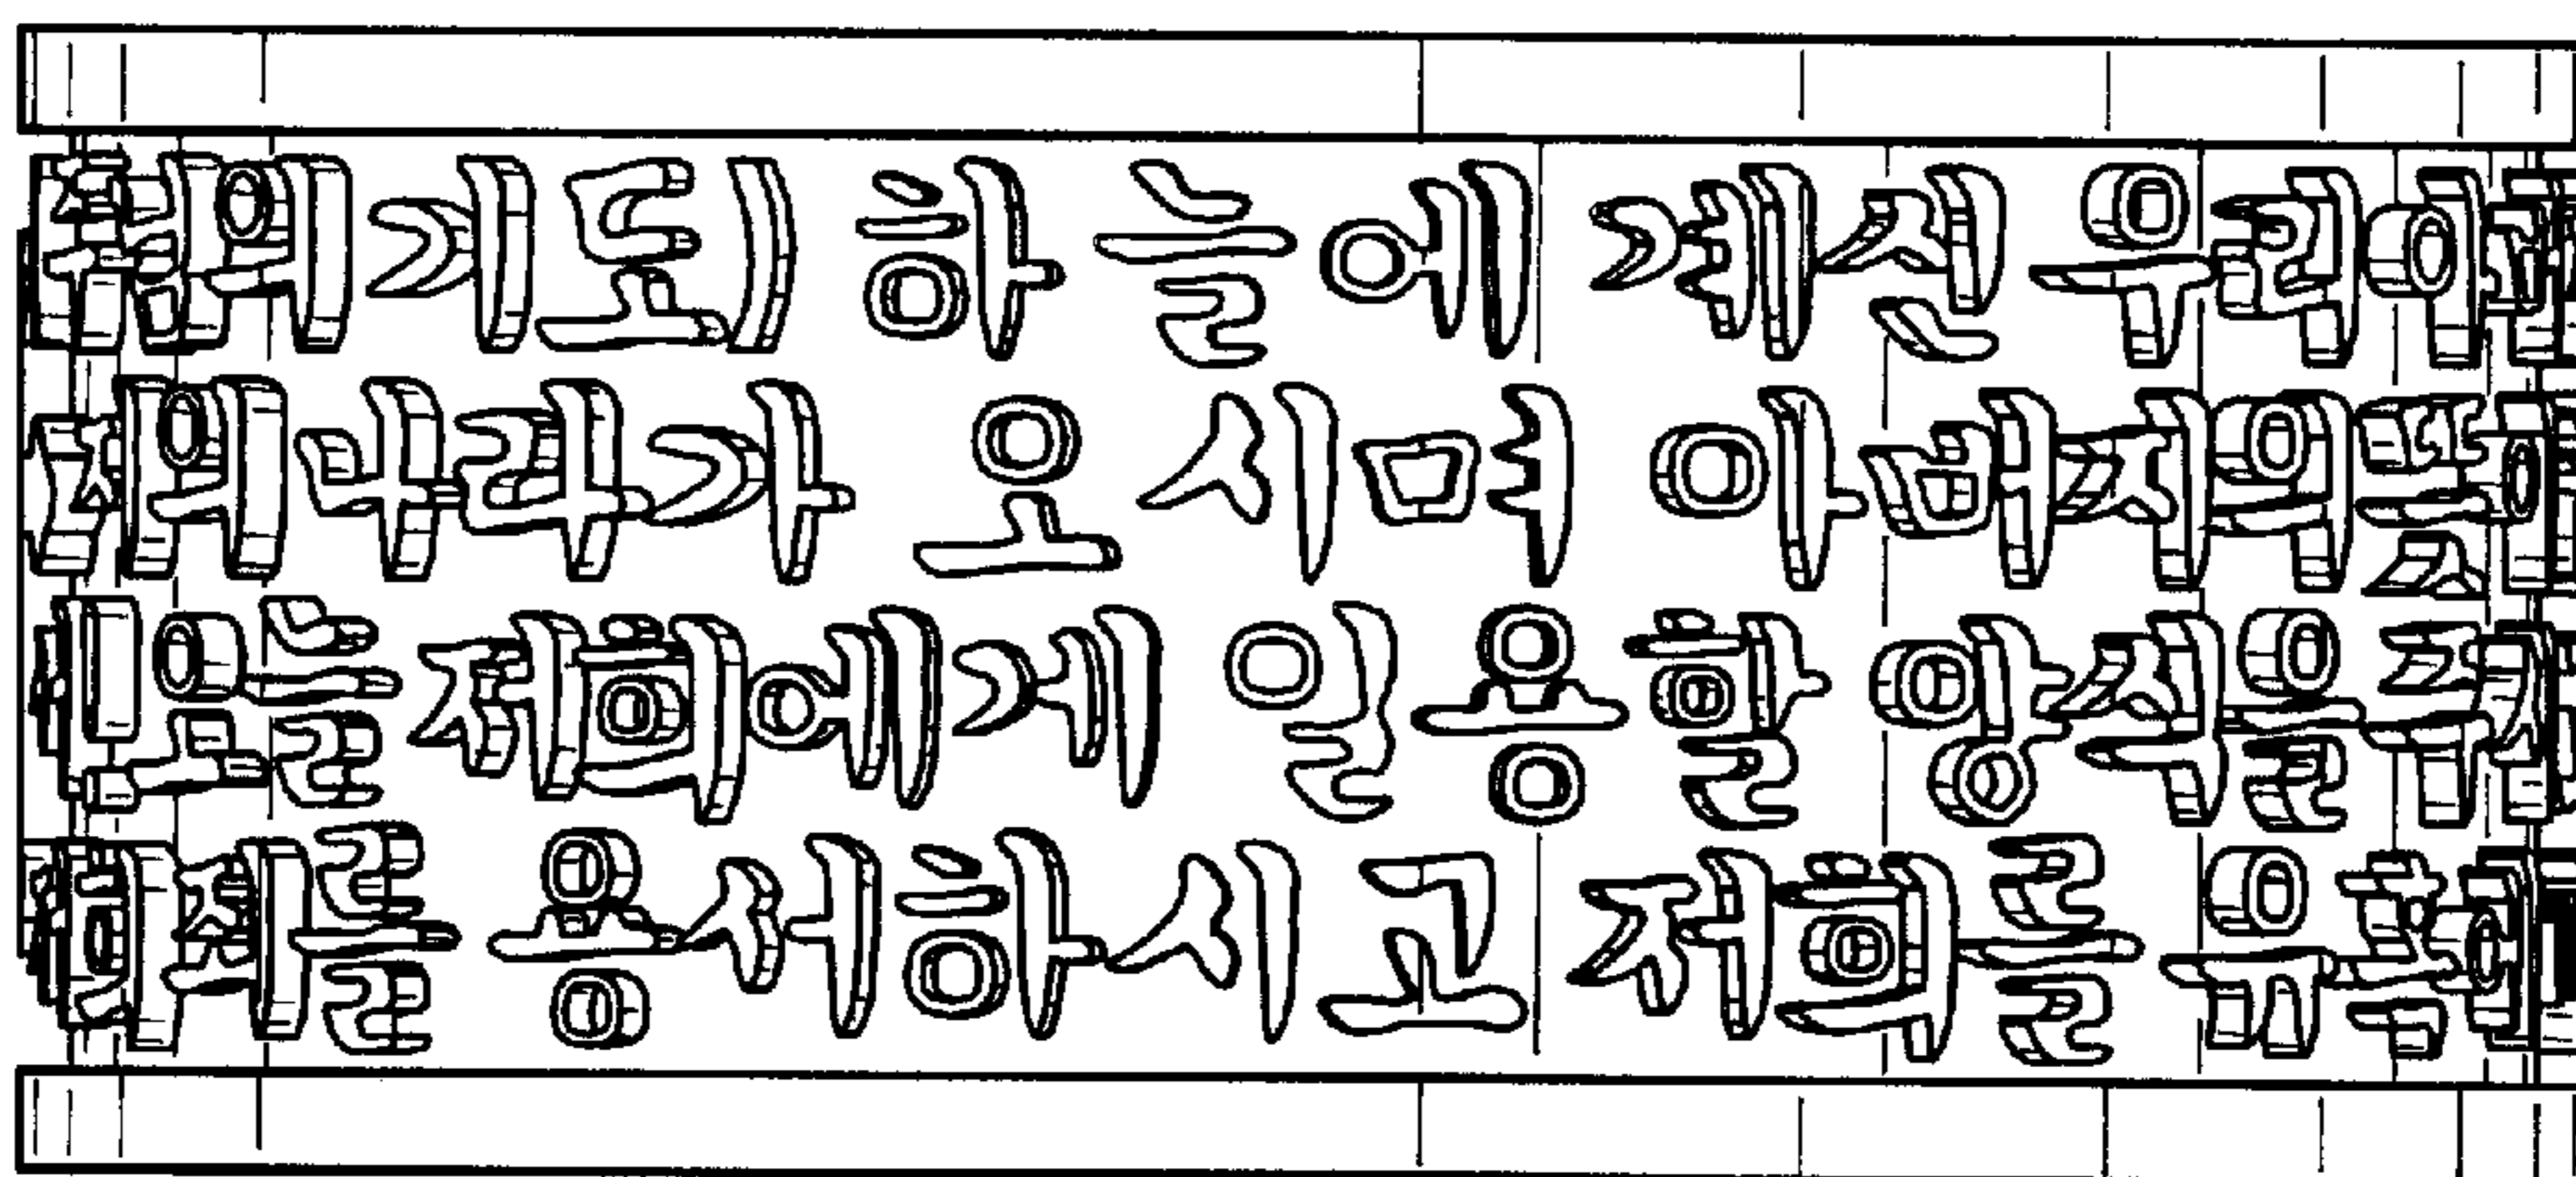 의기도) 하늘에 계신우리아
의나라가 오시며 아버지의뜻이
오늘 저희에게 일용할 양식을주
죄를 용서하시고 저희를 유혹